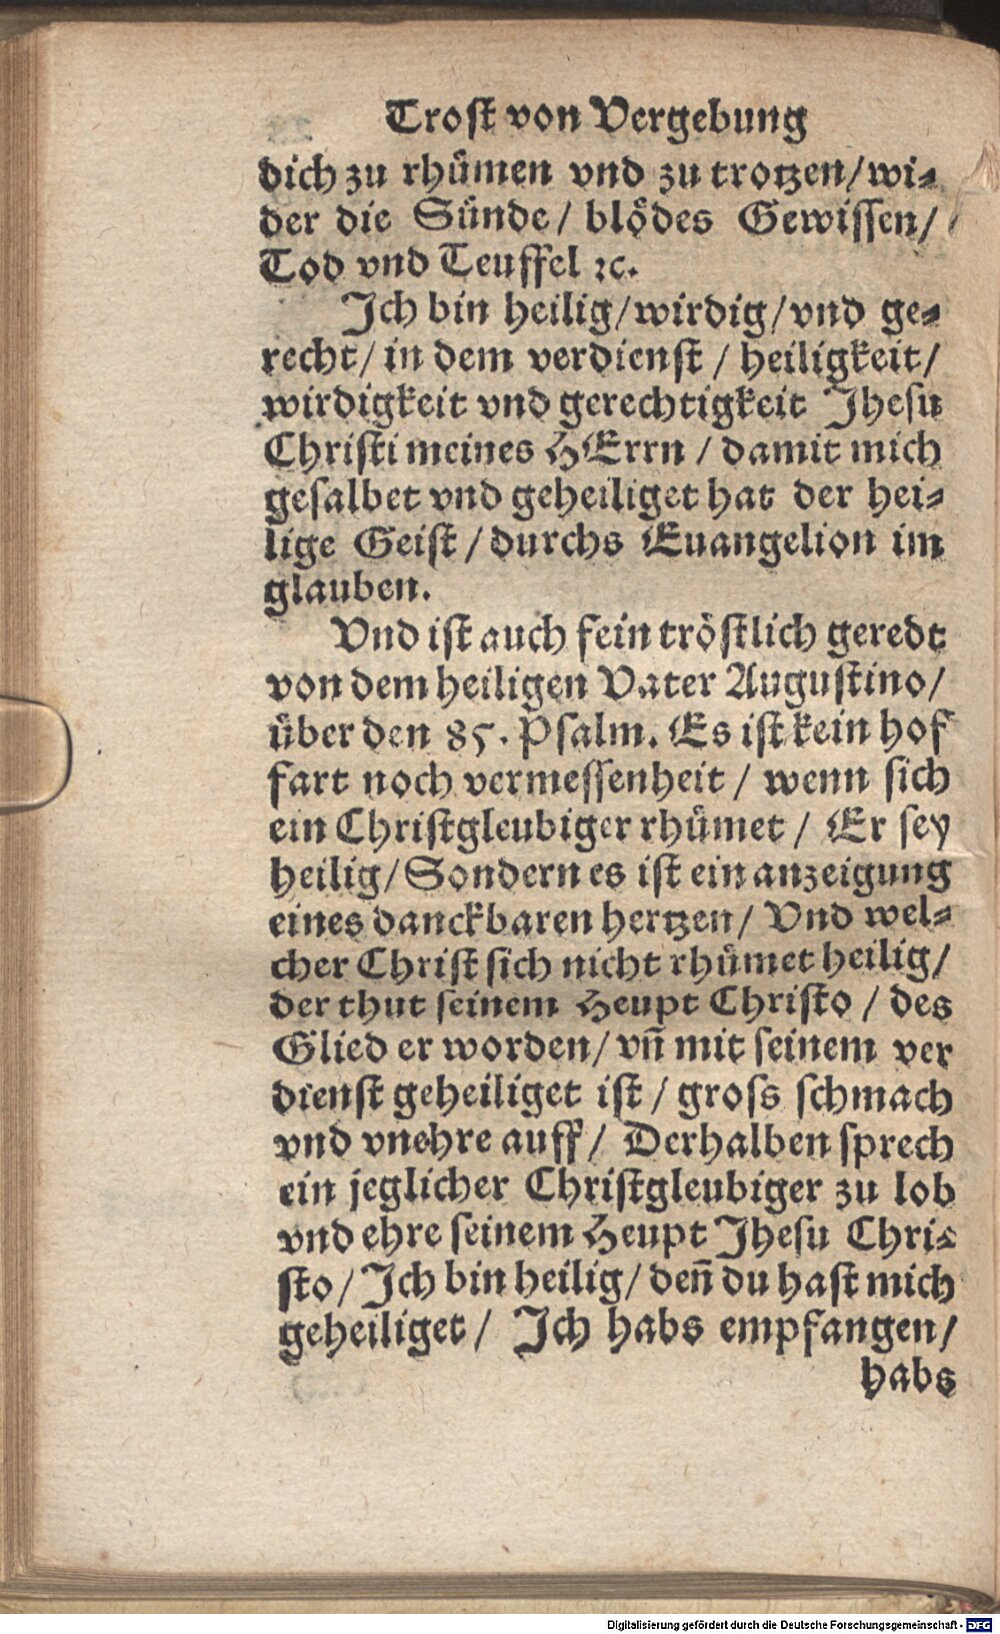 Trost von Vergebung
dich zu rhümen vnd zu trotzen/wi⸗
der die Sünde/ blödes Gewissen/
Tod vnd Teuffel ꝛc.
Ich bin heilig/wirdig/vnd ge⸗
recht/ in dem verdienst / heiligkeit/
wirdigkeit vnd gerechtigkeit Jhesu
Christi meines HErrn / damit mich
gesalbet vnd geheiliget hat der hei⸗
lige Geist / durchs Euangelion im
glauben.
Vnd ist auch fein tröstlich geredt
von dem heiligen Vater Augustino/
über den 85. Psalm. Es ist kein hof
fart noch vermessenheit / wenn sich
ein Christgleubiger rhümet / Er sey
heilig/Sondern es ist ein anzeigung
eines danckbaren hertzen/ Vnd wel⸗
cher Christ sich nicht rhümet heilig/
der thut seinem Heupt Christo / des
Glied er worden/ vñ mit seinem ver
dienst geheiliget ist / gross schmach
vnd vnehre auff/ Derhalben sprech
ein jeglicher Christgleubiger zu lob
vnd ehre seinem Heupt Jhesu Chri⸗
sto/ Ich bin heilig/ deñ du hast mich
geheiliget / Ich habs empfangen/
habs
Digitalisierung gefördert durch die Deutsche Forschungsgemeinschaft - DFG